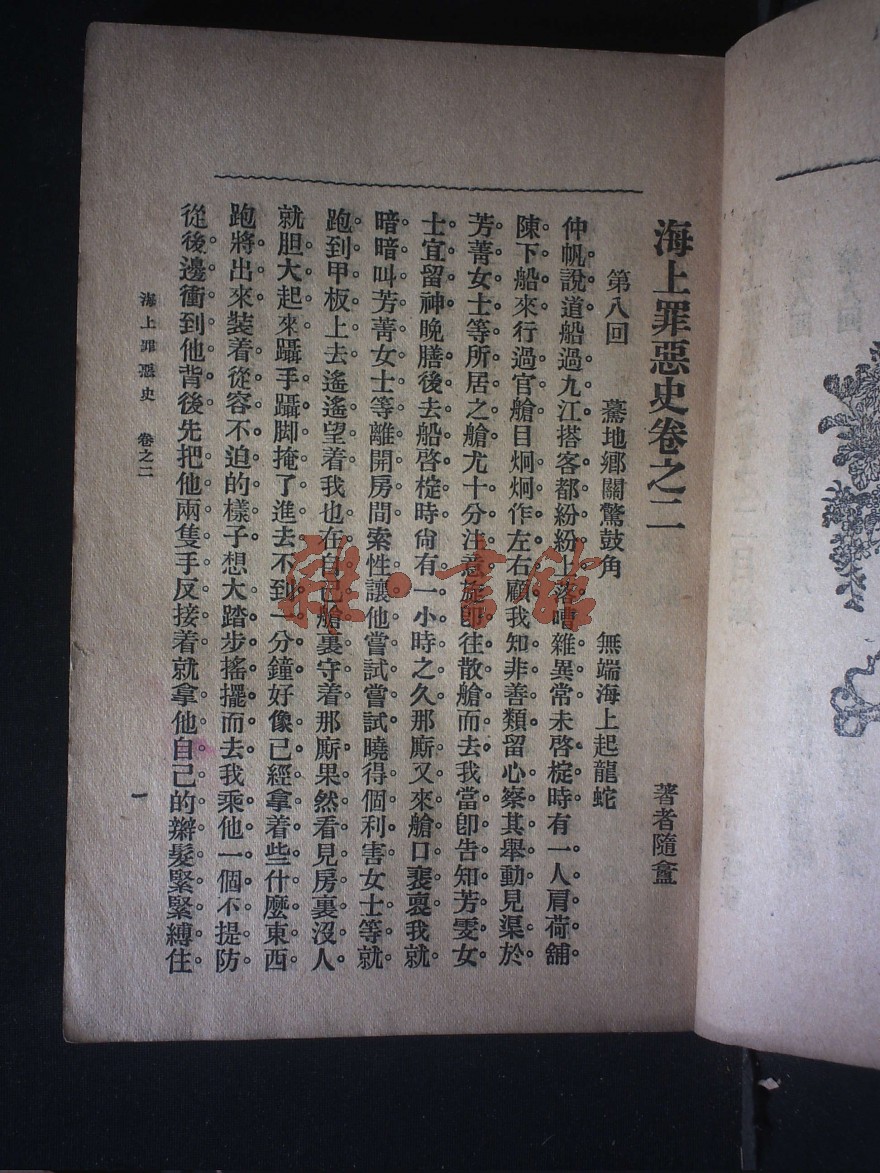 海上罪惡史卷之二
著者隨盦
第八回　驀地鄉關驚鼓角　無端海上起龍蛇
仲帆說道船過九江搭客都紛紛上落嘈雜異常未啓椗時有一人肩荷舖
陳下船來行過官艙目炯炯作左右顧我知非善類留心察其舉動見渠於
芳菁女士等所居之艙尤十分注意旋卽往散艙而去我當卽告知芳雯女
士宜留神晚膳後去船啓椗時尙有一小時之久那厮又來艙口裵裒我就
暗暗叫芳菁女士等離開房間索性讓他嘗試嘗試曉得個利害女士等就
跑到甲板上去遙遙望着我也在自己艙裏守着那厮果然看見房裏沒人
就胆大起來躡手躡脚掩了進去不到一分鐘好像已經拿着些什麼東西
跑將出來裝着從容不迫的樣子想大踏步搖擺而去我乘他一個不提防
從後邊衝到他背後先把他兩隻手反接着就拿他自己的辮髮緊緊縛住
海上罪惡史　卷之二
一
雜·書館